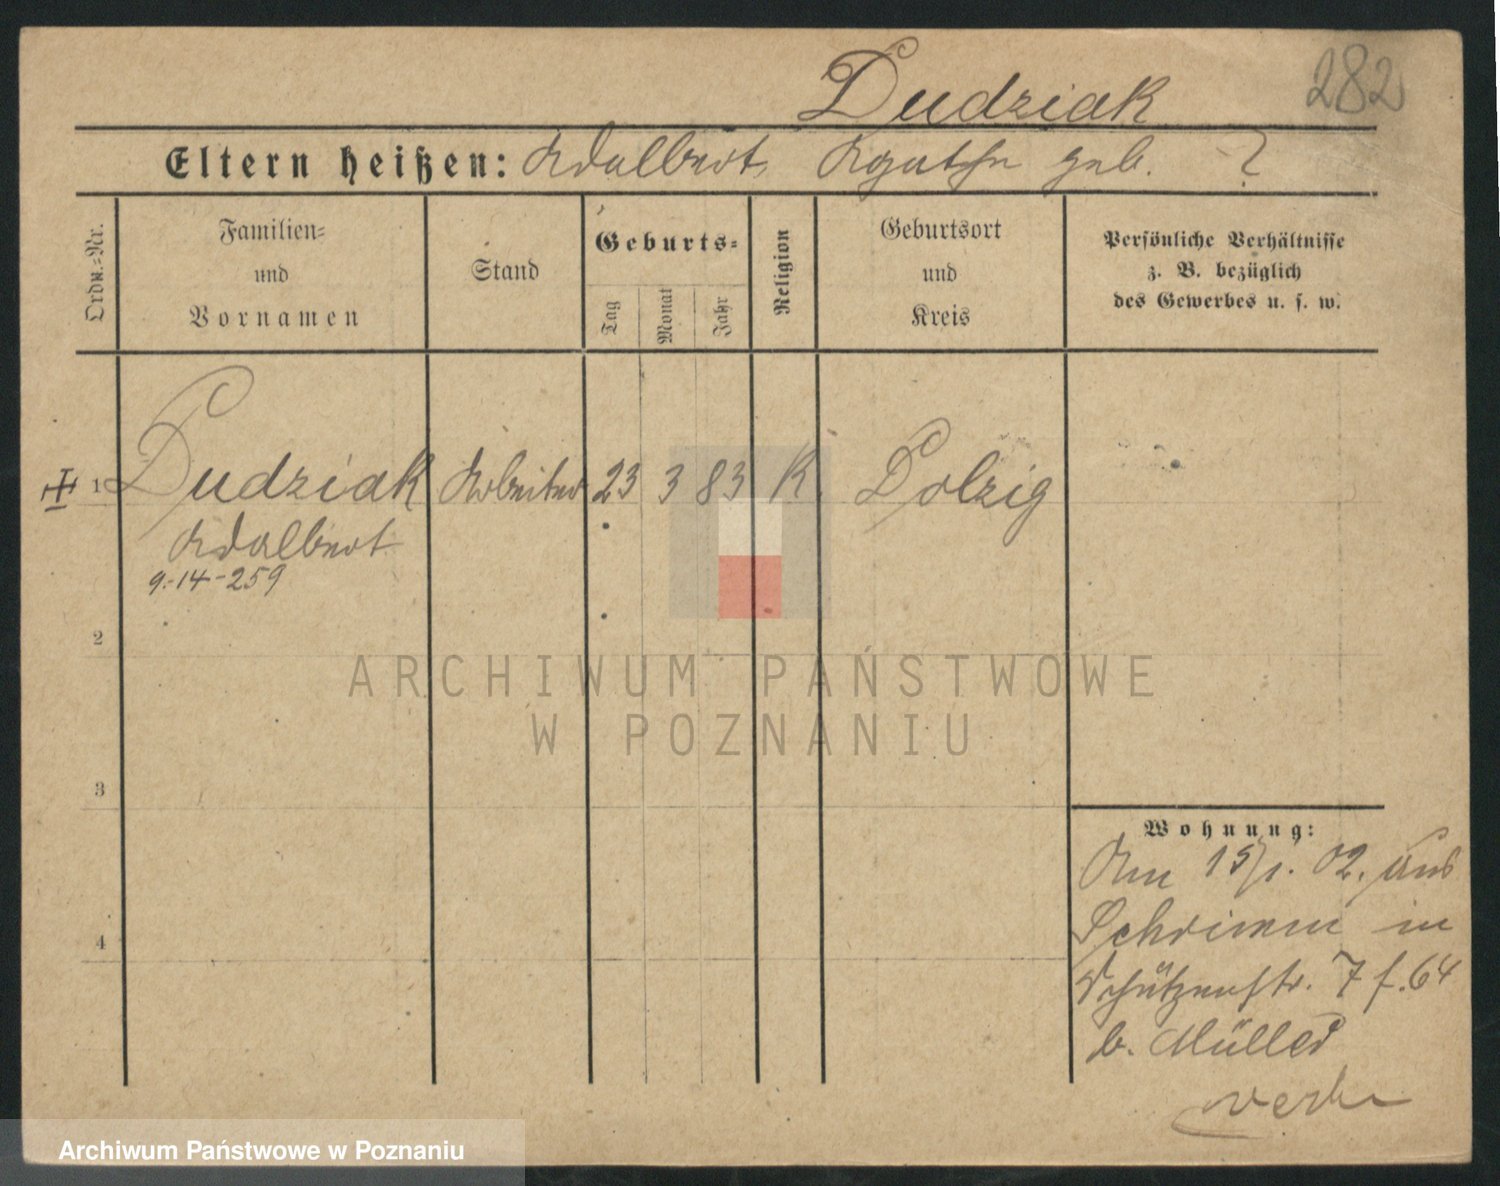 Dudziak
282
Eltern heißen: Adalbert, Agathe geb. ?
Ordn.-Nr.
Familien-
und
Vornamen
Stand
Geburts-
Tag
Monat
Jahr
Religion
Geburtsort
und
Kreis
Persönliche Verhältnisse
z. B. bezüglich
des Gewerbes u. s. w.
1 Dudziak Arbeiter 23 3 83 K. Dolzig
Adalbert
9.-14-259
2
3
4
Wohnung:
Am 15/1. 02. aus
Schrimm in
Schützenstr. 7 f. 64
b. Müller
ARCHIWUM PAŃSTWOWE
W POZNANIU
Archiwum Państwowe w Poznaniu